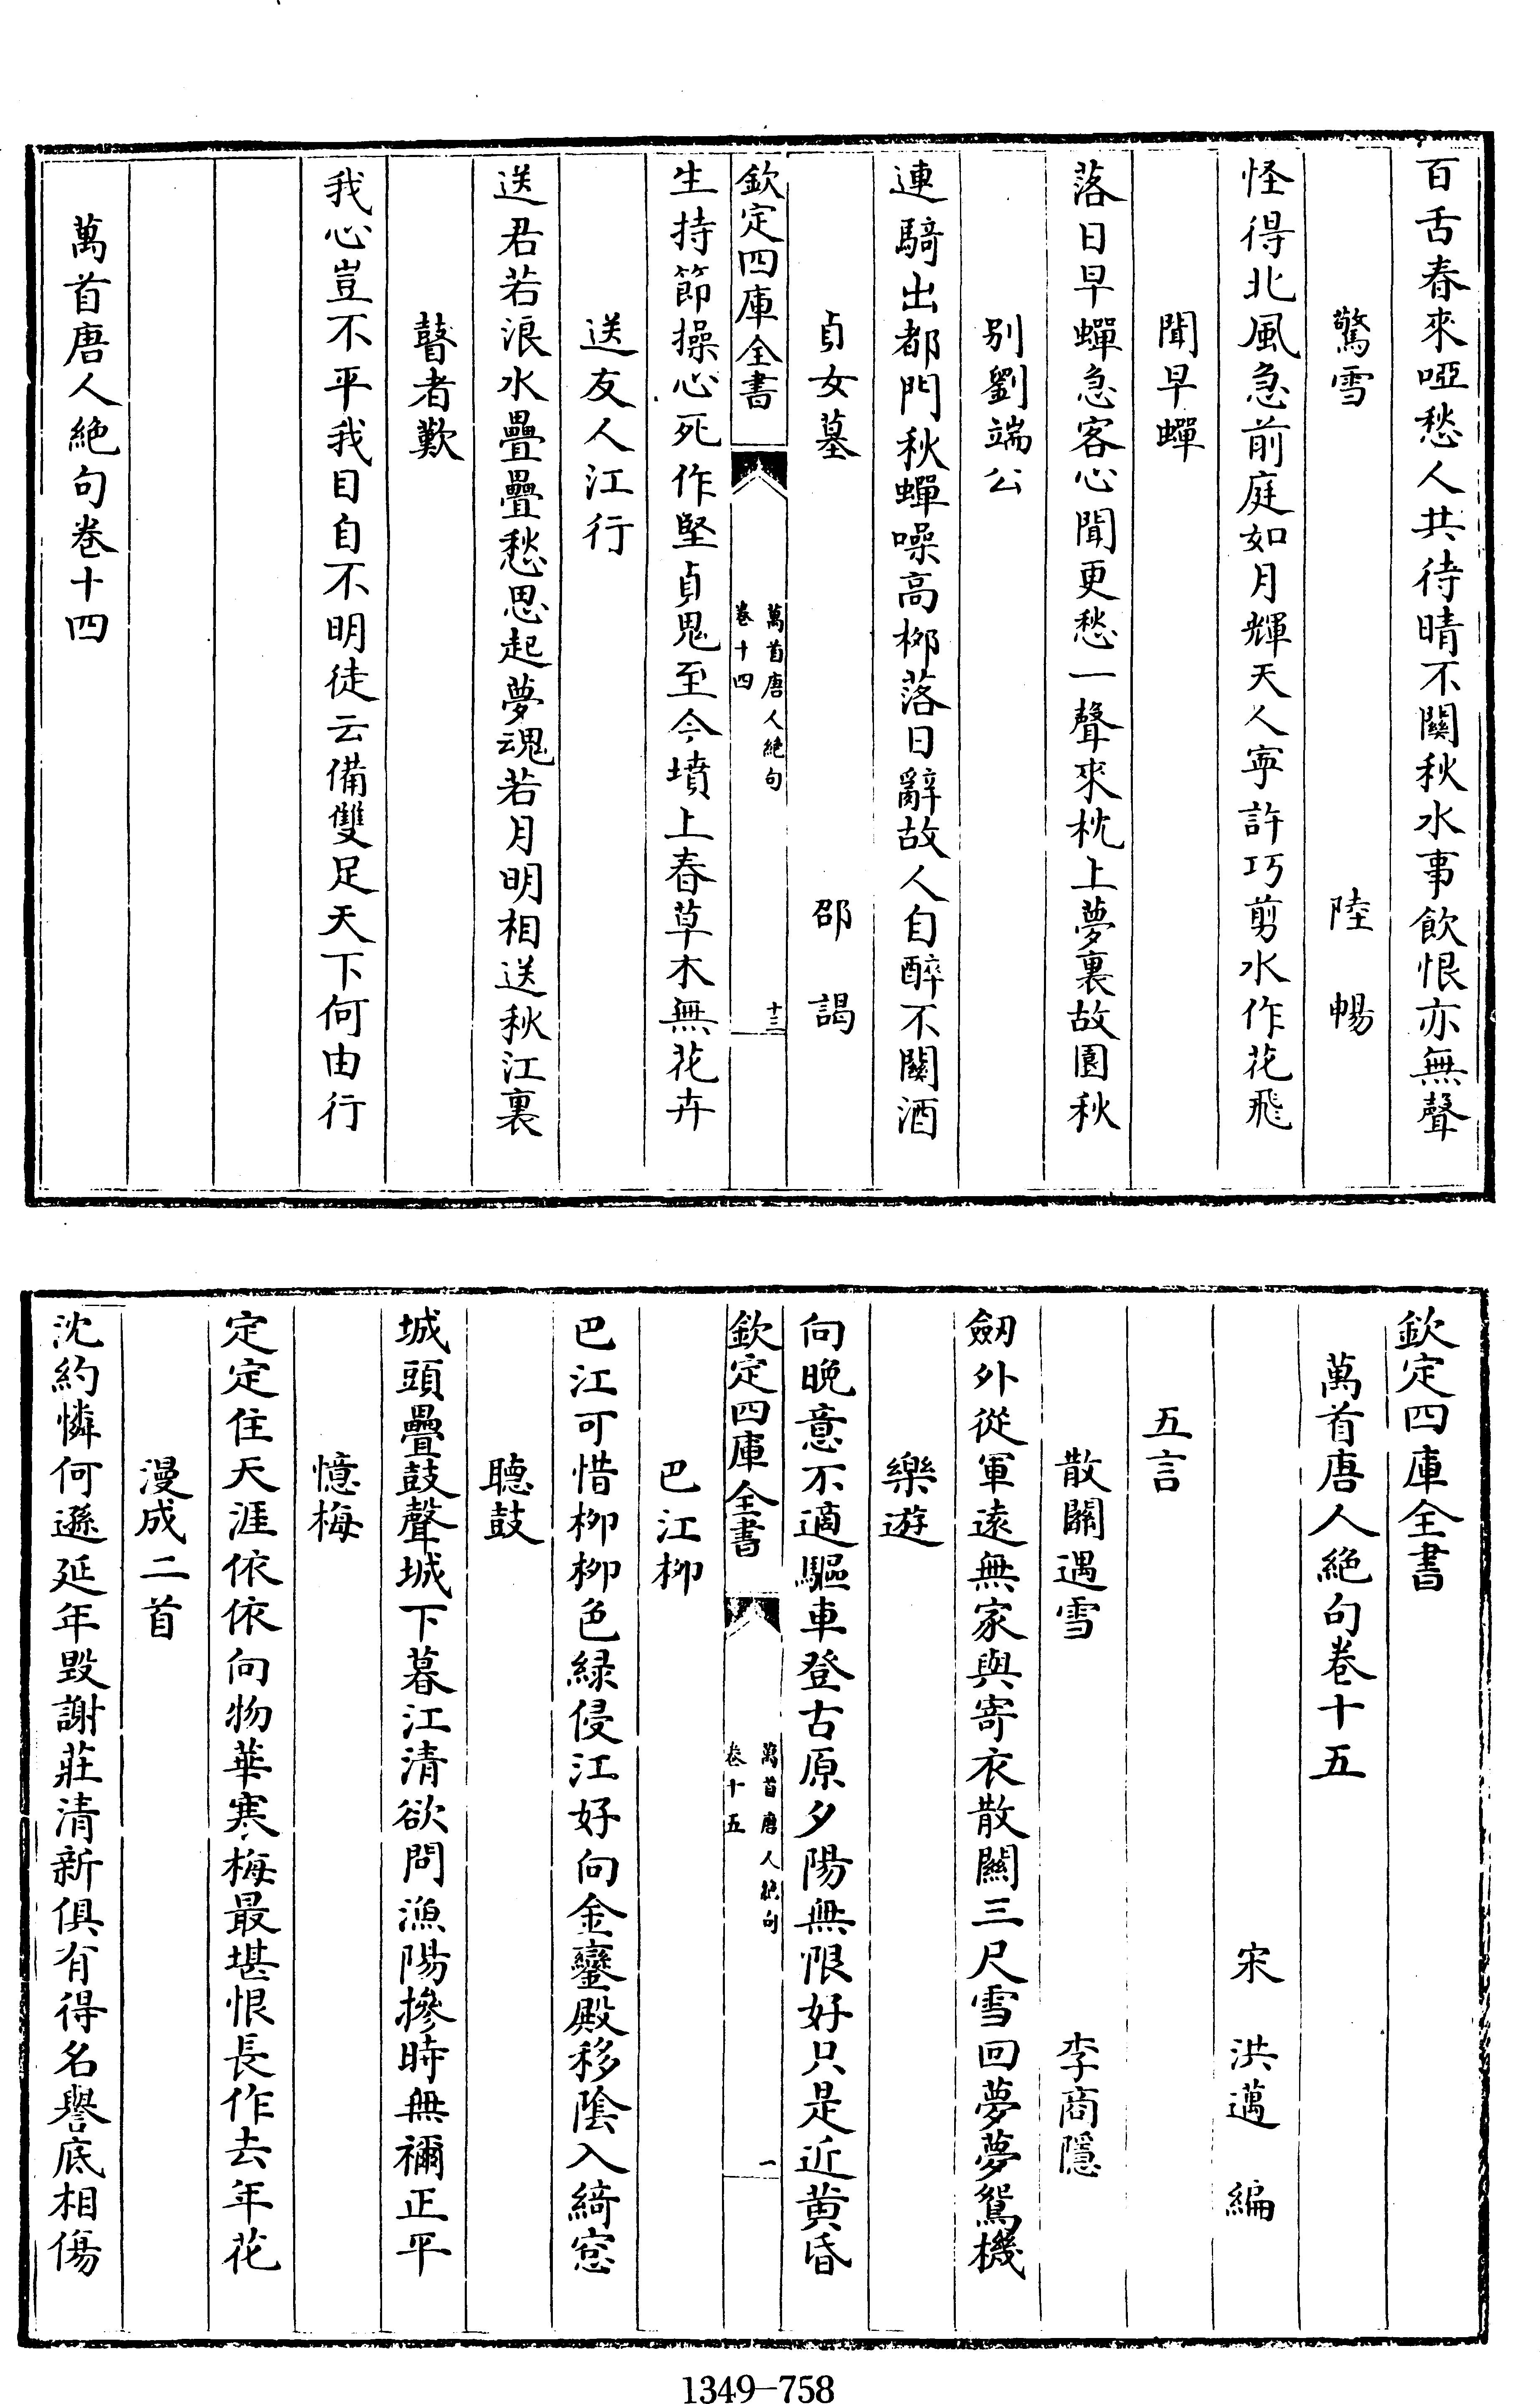 百舌春來啞愁人共待晴不關秋水事飲恨亦無聲
驚雪 陸暢
怪得北風急前庭如月輝天人寧許巧剪水作花飛
聞早蟬
落日早蟬急客心聞更愁一聲來枕上夢裏故園秋
别劉端公
連騎出都門秋蟬噪高栁落日辭故人自醉不關酒
貞女墓 邵謁
欽定四庫全書
萬首唐人絶句
卷十四
十三
生持節操心死作堅貞鬼至今墳上春草木無花卉
送友人江行
送君若浪水疊疊愁思起夢魂若月明相送秋江裏
瞽者歎
我心豈不平我目自不明徒云備雙足天下何由行
萬首唐人絶句卷十四
欽定四庫全書
萬首唐人絶句卷十五
宋 洪邁 編
五言
散關遇雪 李商隱
劒外從軍逺無家與寄衣散關三尺雪回夢夢鴛機
樂遊
向晚意不適驅車登古原夕陽無恨好只是近黄昏
欽定四庫全書
萬首唐人絶句
卷十五
一
巴江栁
巴江可惜栁栁色緑侵江好向金鑾殿移陰入綺窓
聽鼓
城頭疊鼓聲城下暮江清欲問漁陽摻時無禰正平
憶梅
定定住天涯依依向物華寒梅最堪恨長作去年花
漫成二首
沈約憐何遜延年毁謝莊清新俱有得名譽底相傷
1349-758